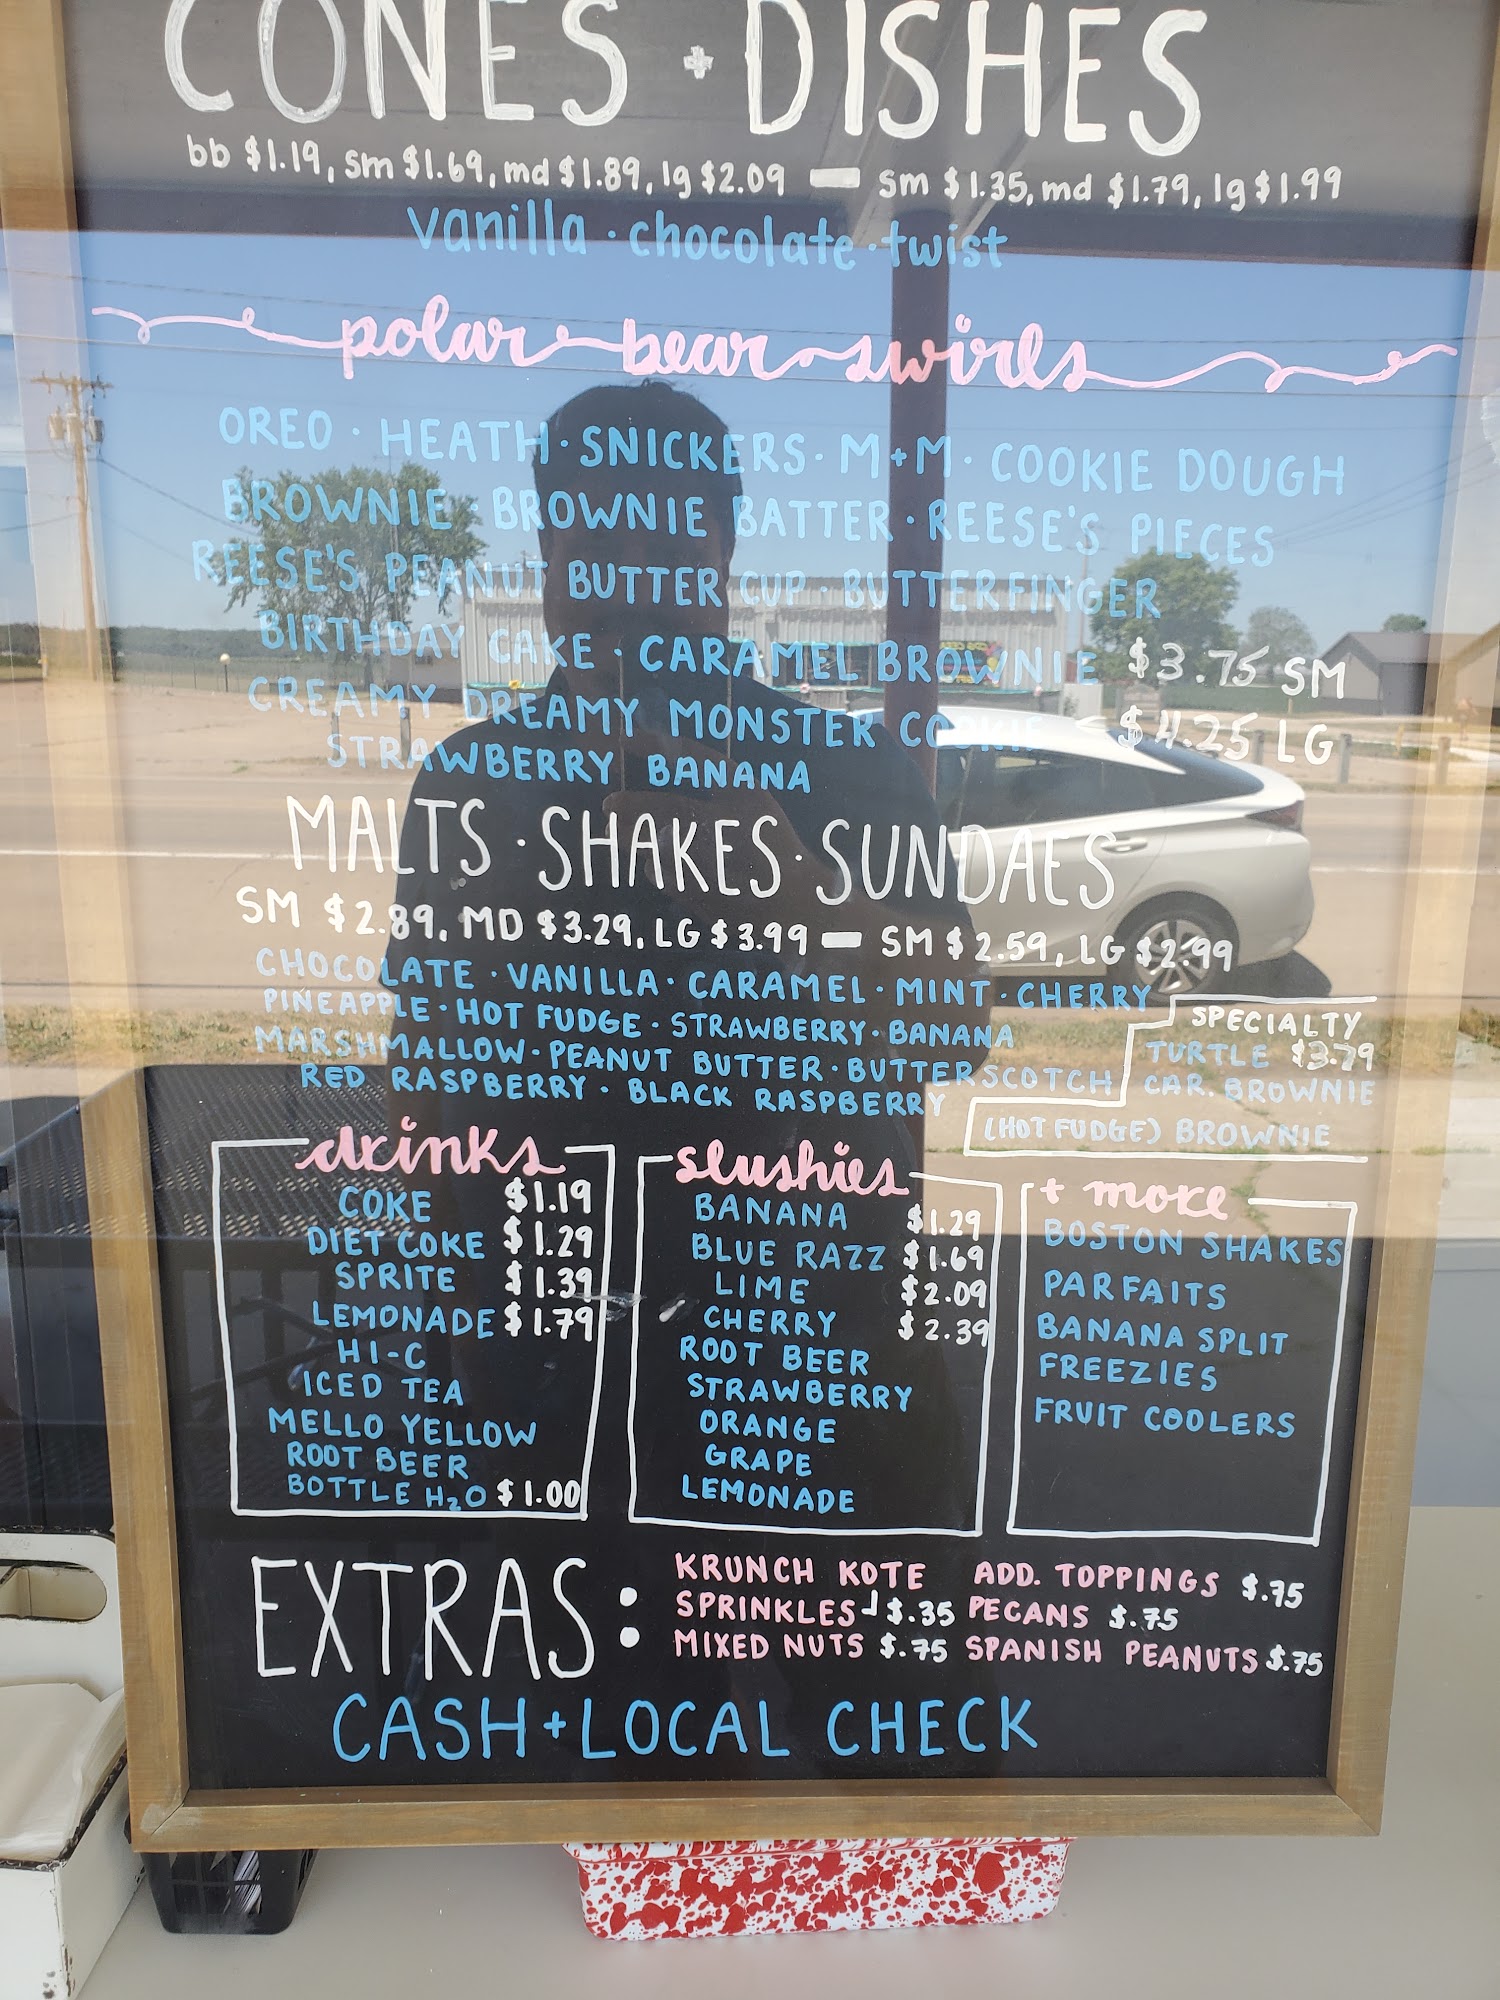 CONES + DISHES
bb $1.19, sm $1.69, md $1.89, lg $2.09 — sm $1.35, md $1.79, lg $1.99
vanilla · chocolate · twist
polar bear swirls
OREO · HEATH · SNICKERS · M+M · COOKIE DOUGH
BROWNIE · BROWNIE BATTER · REESE'S PIECES
REESE'S PEANUT BUTTER CUP · BUTTERFINGER
BIRTHDAY CAKE · CARAMEL BROWNIE $3.75 SM
CREAMY DREAMY MONSTER COOKIE $4.25 LG
STRAWBERRY BANANA
MALTS · SHAKES · SUNDAES
SM $2.89, MD $3.29, LG $3.99 — SM $2.59, LG $2.99
CHOCOLATE · VANILLA · CARAMEL · MINT · CHERRY
PINEAPPLE · HOT FUDGE · STRAWBERRY · BANANA
MARSHMALLOW · PEANUT BUTTER · BUTTERSCOTCH
RED RASPBERRY · BLACK RASPBERRY
SPECIALTY
TURTLE $3.79
CAR. BROWNIE
(HOT FUDGE) BROWNIE
drinks
COKE $1.19
DIET COKE $1.29
SPRITE $1.39
LEMONADE $1.79
HI-C
ICED TEA
MELLO YELLOW
ROOT BEER
BOTTLE H2O $1.00
slushies
BANANA $1.29
BLUE RAZZ $1.69
LIME $2.09
CHERRY $2.39
ROOT BEER
STRAWBERRY
ORANGE
GRAPE
LEMONADE
+ more
BOSTON SHAKES
PARFAITS
BANANA SPLIT
FREEZIES
FRUIT COOLERS
EXTRAS:
KRUNCH KOTE ADD. TOPPINGS $.75
SPRINKLES $.35 PECANS $.75
MIXED NUTS $.75 SPANISH PEANUTS $.75
CASH + LOCAL CHECK